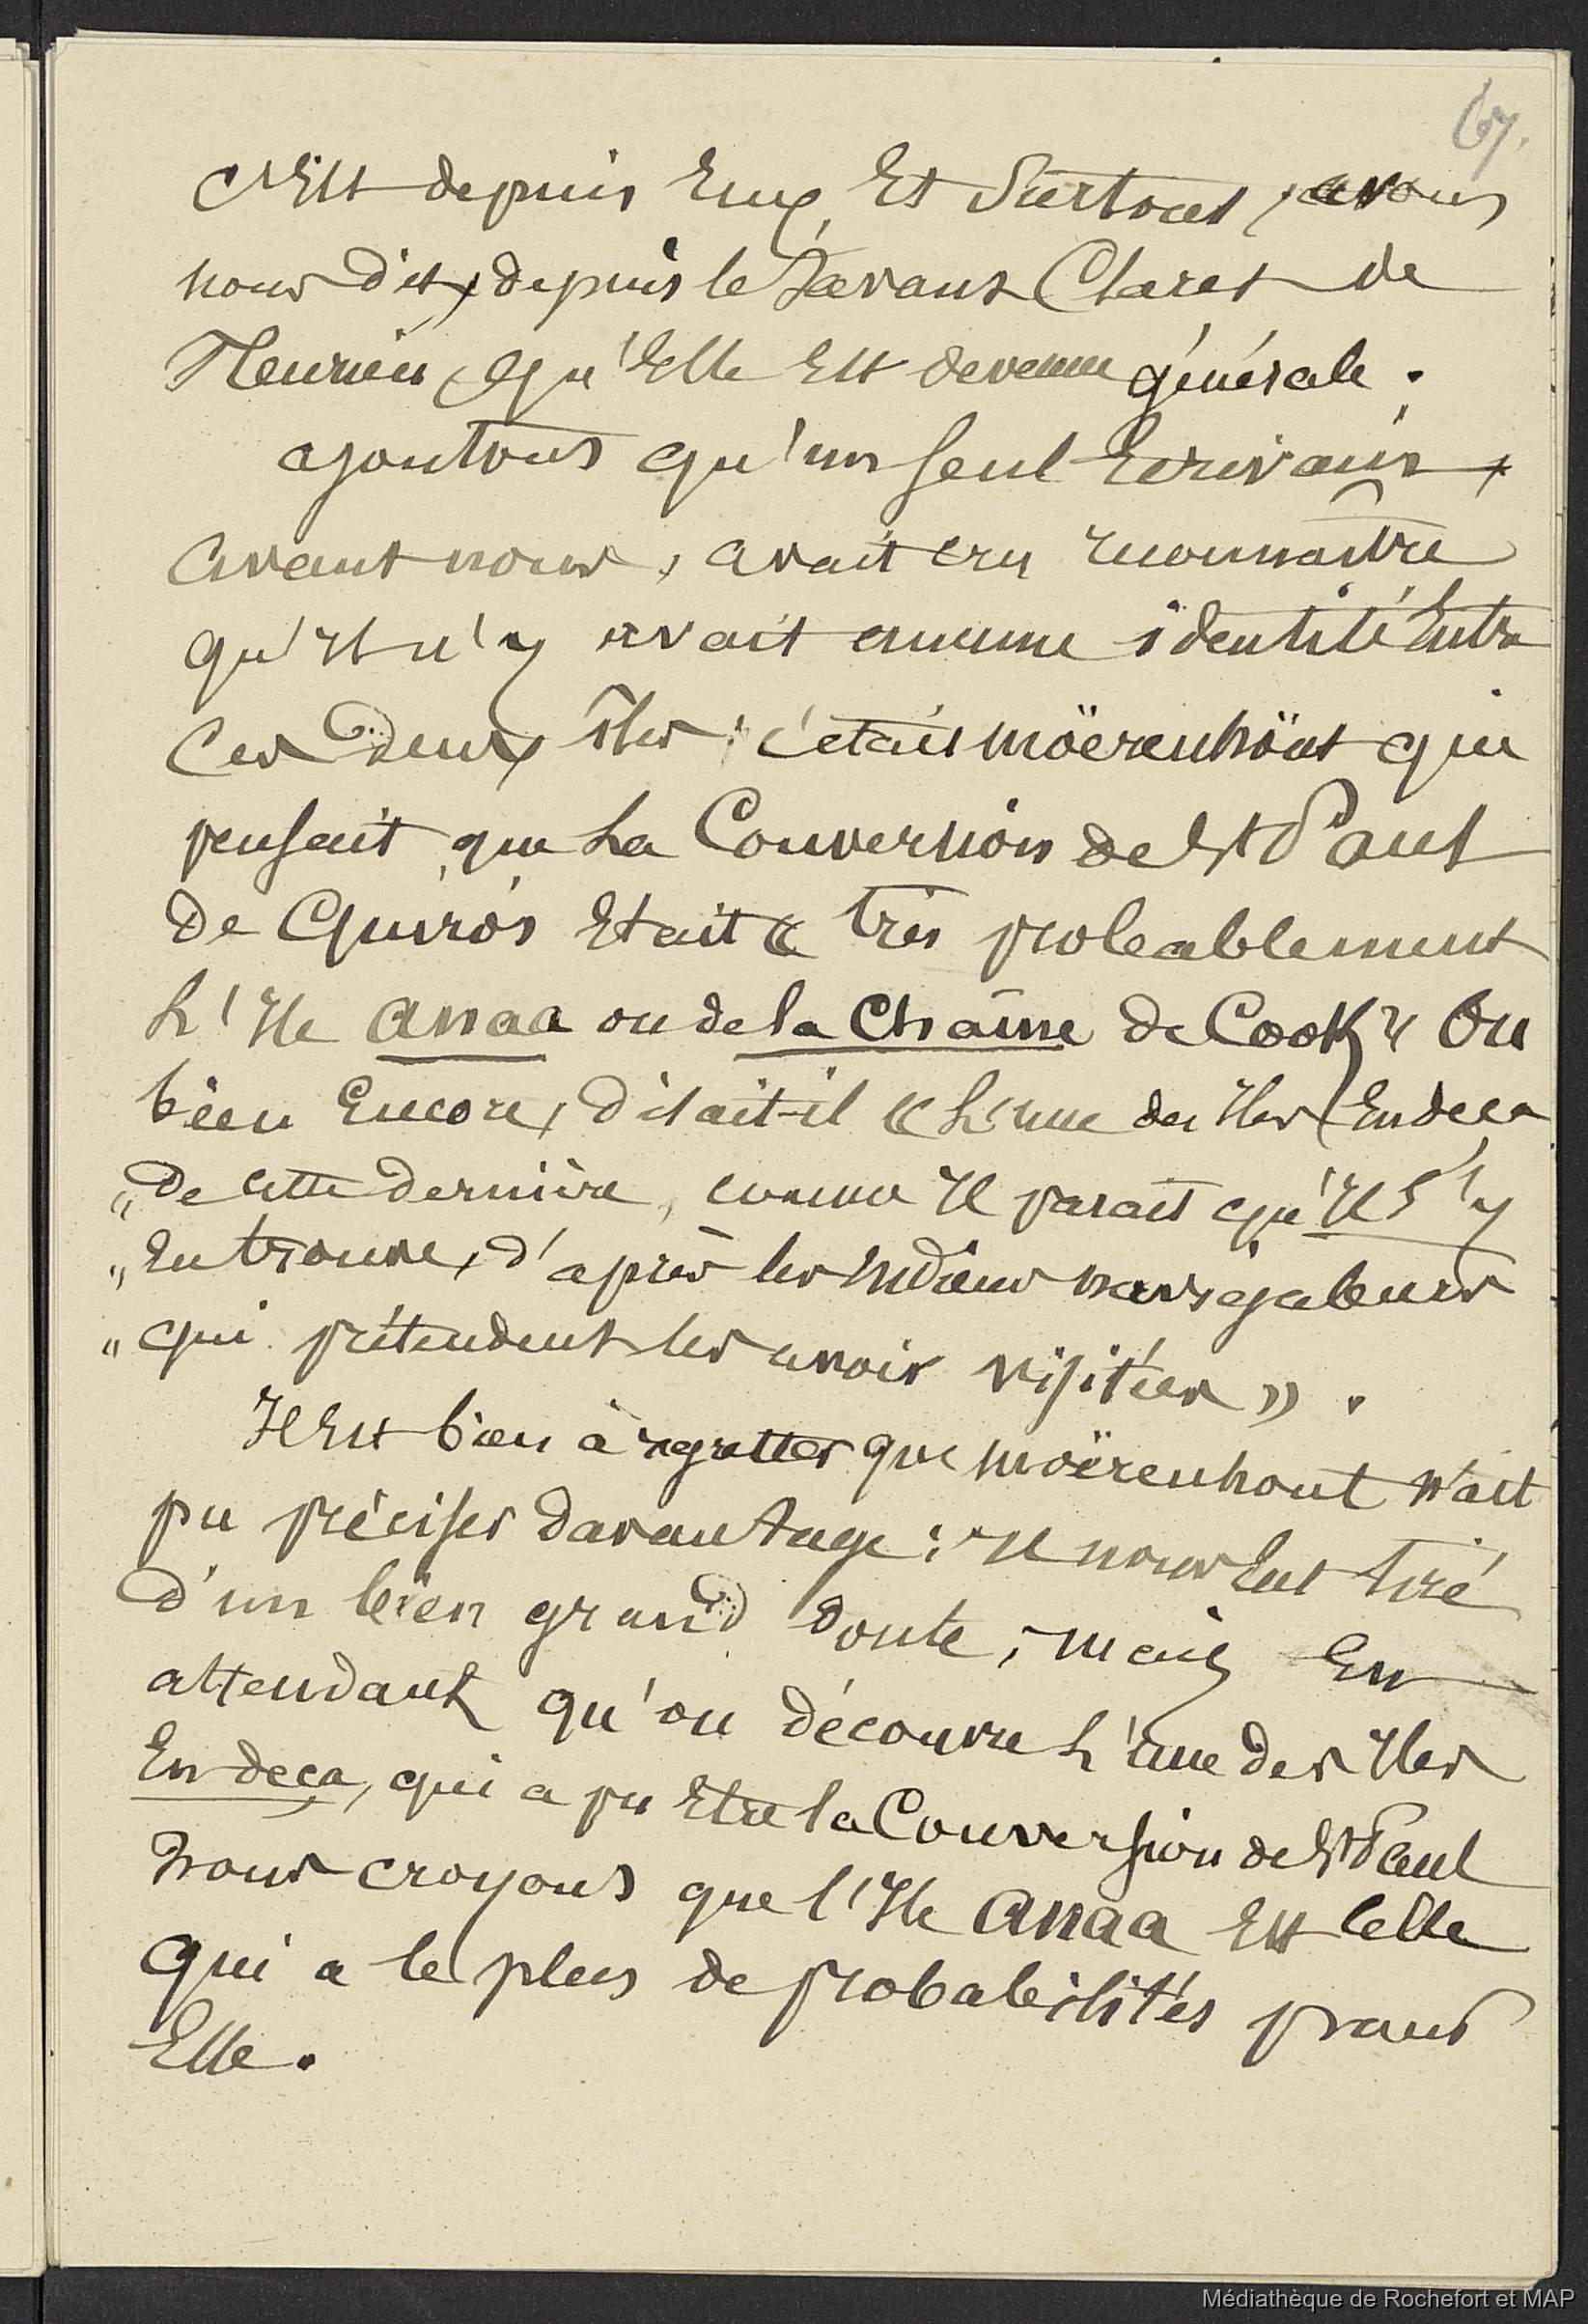 67.
C'Est depuis Eux, Et Surtout, avons
nous dit, depuis le Savant Claret de
Fleurieu, qu'Elle Est devenue générale.
ajoutons qu'un seul Ecrivain,
avant nous, avait cru reconnaître
qu'Il n'y avait aucune identité Entre
Ces deux Iles : c'était Moërenhöut qui
pensait que La Conversion de St Paul
De Quirós Etait « très probablement
L'Ile Anaa ou de la Chaîne de Cook » Ou
bien Encore, disait-il « L'une des Iles En deça
„ De cette dernière, comme Il parait qu'Il s'y
„ En trouve, d'après les Indiens navigateurs
„ qui prétendent les avoir visitées ».
Il Est bien à regretter que Moërenhout n'ait
pu préciser davantage : Il nous Eut tiré
D'un bien grand doute ; mais En
attendant qu'on découvre L'une des Iles
En deça, qui a pu Etre la Conversion de St Paul
Nous croyons que l'Ile Anaa Est celle
Qui a le plus de probabilités pour
Elle.
Médiathèque de Rochefort et MAP